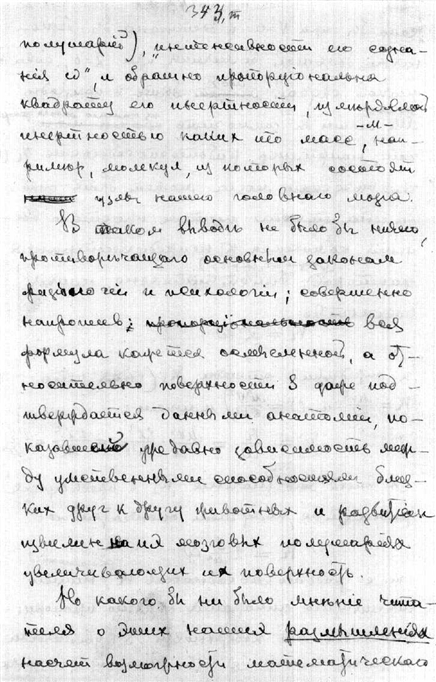 полушарій), "интенсивности его созна-
нія  ", и обратно пропорціональна
квадрату его инертности, измѣряемой
инертностью каких то масс, нап-
ример, молекул, из которых состоят
узлы нашего головного мозга.
В таком выводѣ не было бы ничего,
противорѣчащаго основным законам
физіологіи и психологіи; совершенно
напротив; вся
формула кажется осмысленной, а от-
носительно поверхности S даже под-
тверждается данными анатоміи, по-
казавшей  зависимость меж-
ду умственными способностями близ-
ких друг к другу животных и развитіем
извилин на их мозговых полушаріях
увеличивающих их поверхность.
Но какого бы ни было мнѣніе чита-
теля о этих наших размышленіях
насчет возможности математическаго